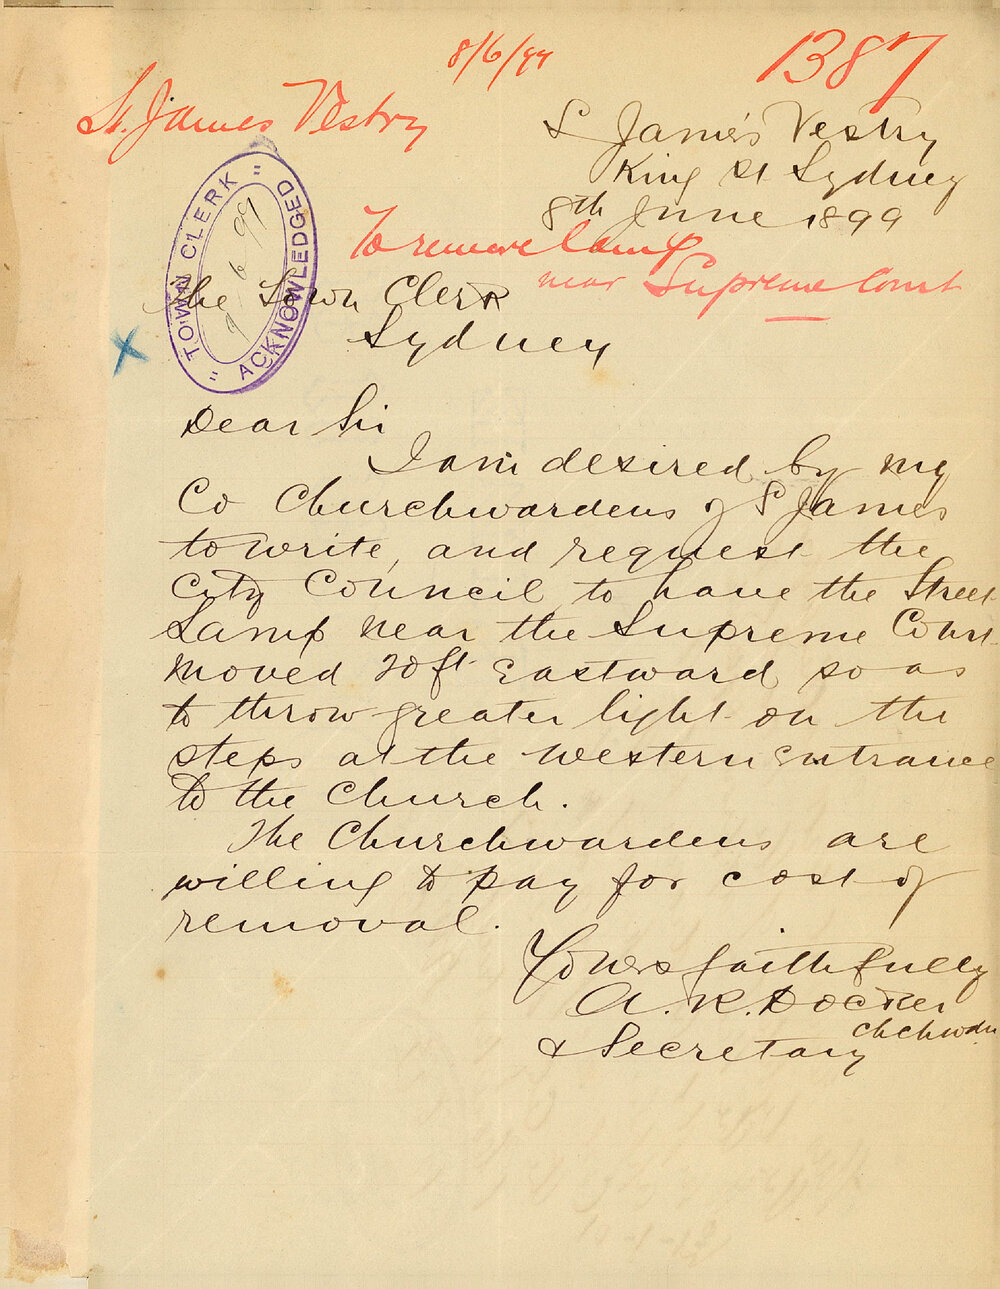 8/6/99
1387
St. James Vestry
S James's Vestry
King St Sydney
8th June 1899
To remove lamp
near Supreme Court
TOWN CLERK
9 6 99
ACKNOWLEDGED
The Town Clerk
Sydney
Dear Sir
I am desired by my
Co Churchwardens of S James
to write, and request the
City Council to have the Street
Lamp near the Supreme Court
moved 20 ft Eastward so as
to throw greater light on the
steps at the Western Entrance
to the Church.
The Churchwardens are
willing to pay for cost of
removal.
Yours faithfully
A. R. Docker
Chchwdn
& Secretary